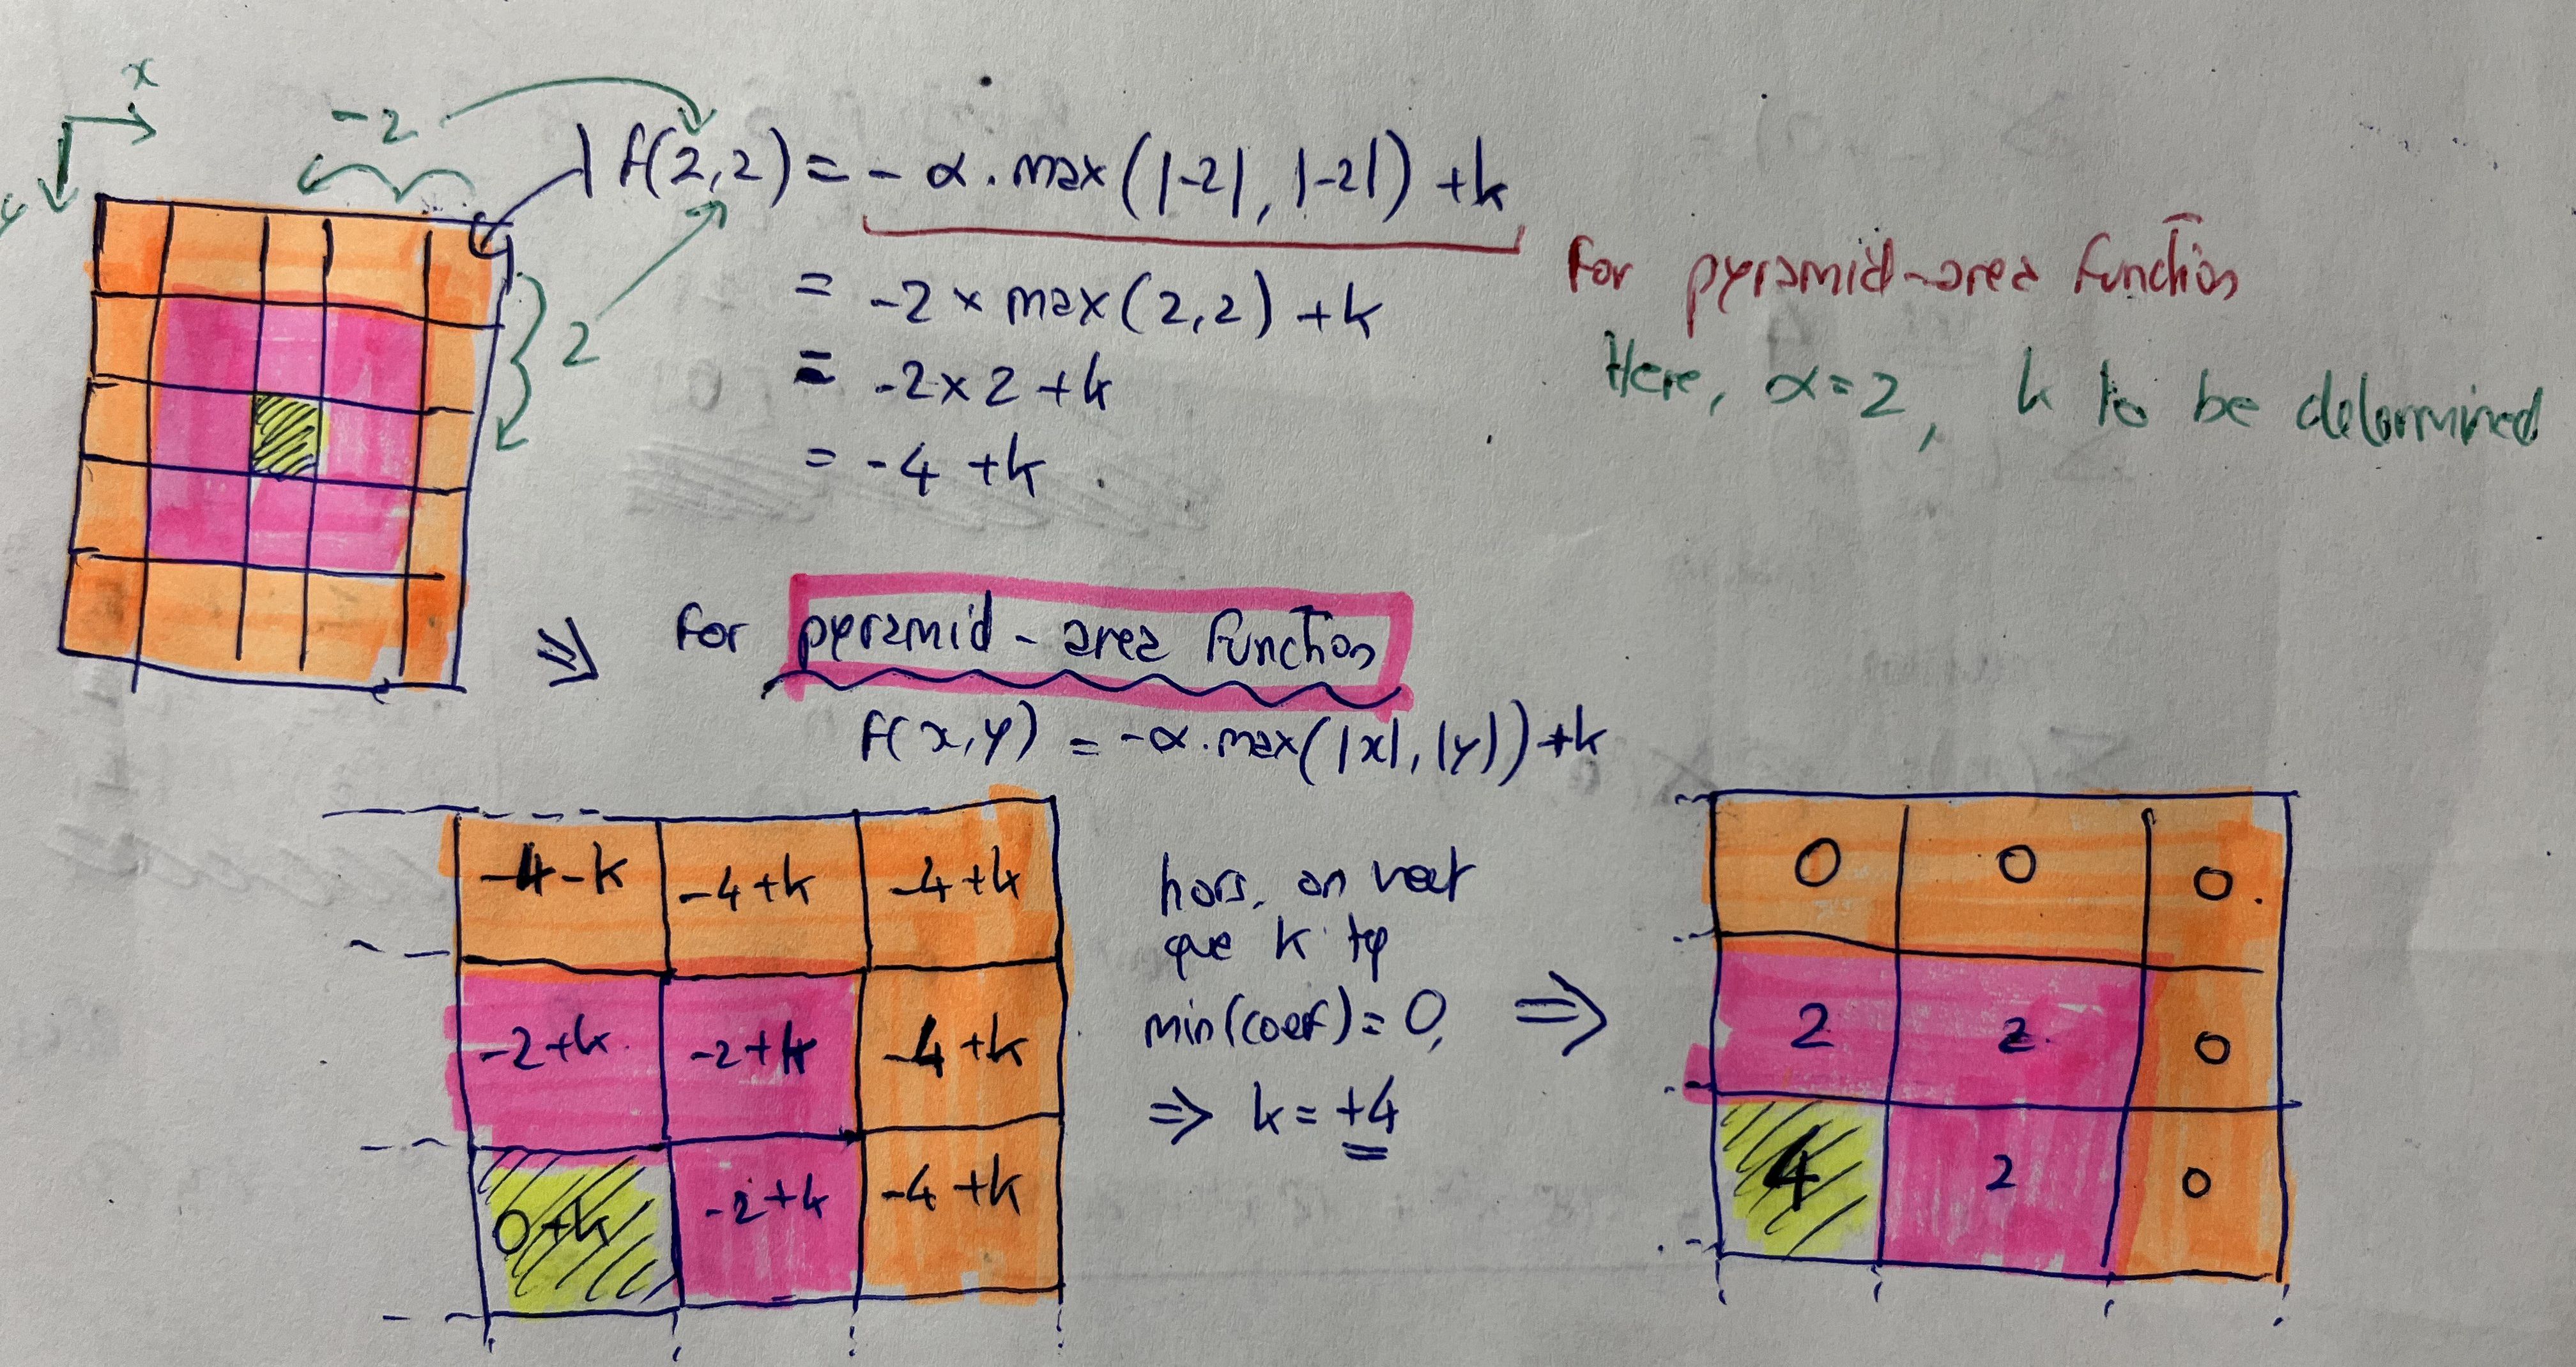 x
y
-2
f(2,2) = - α . max (|-2|, |-2|) + k
2
For pyramid-area function
= -2 x max (2,2) + k
Here, α = 2, k to be determined
= -2 x 2 + k
= -4 + k
=> For pyramid - area function
f(x,y) = -α. max(|x|, |y|) + k
-4-k -4+k -4+k
-2+k -2+k -4+k
0+k -2+k -4+k
hors, on veut
que k tq
min(coef) = 0,
=> k = +4
=>
0 0 0
2 2 0
4 2 0